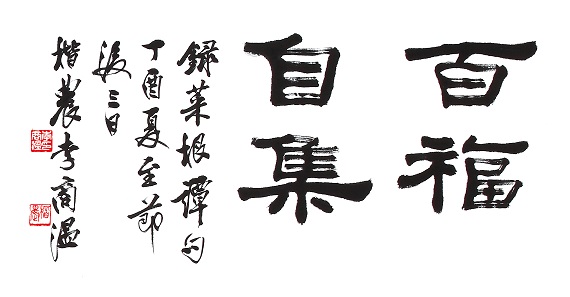 百福
自集
録菜根譚句
丁酉夏至節
後三日
楷農李商温